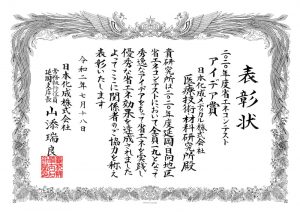 表彰状
二〇二〇年度省エネコンテスト
アイデア賞
日本化成メディカル株式会社
医療技術材料研究所殿
貴研究所は二〇二〇年度延岡・日向地区
省エネコンテストにおいて全員一丸となって
秀逸なアイデアをもって省エネを実践し
優秀な省エネ効果を達成されました
よってここに関係者のご協力を称え
表彰いたします
令和二年七月二八日
日本化成株式会社
山添瑞良